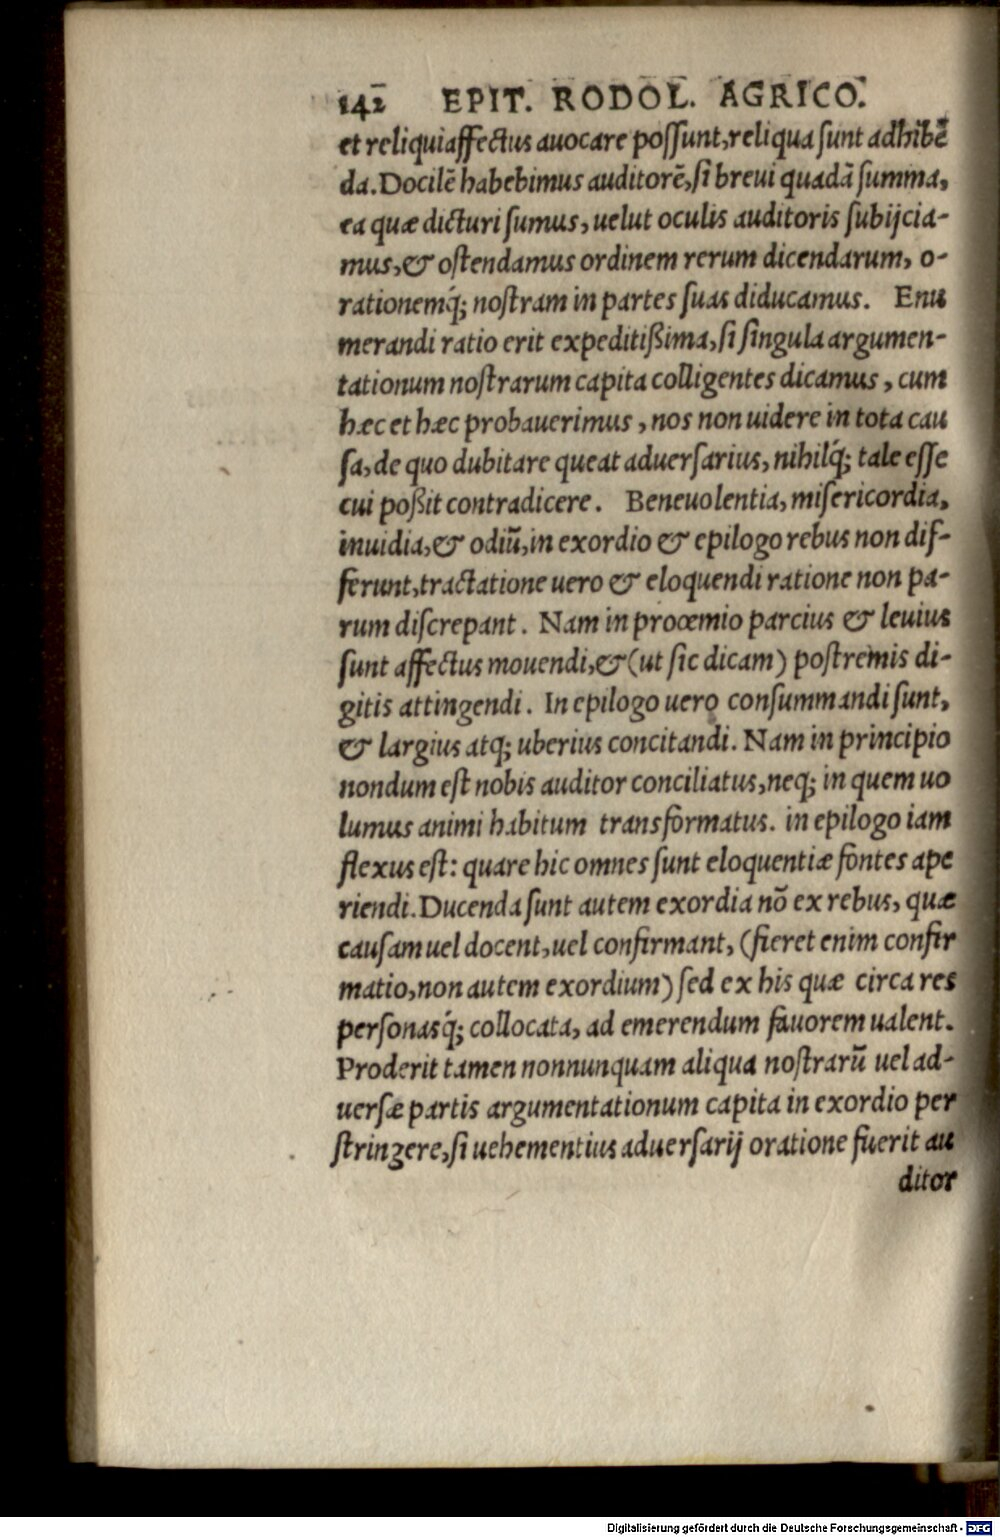 142 EPIT. RODOL. AGRICO.
et reliqui affectus auocare possunt, reliqua sunt adhibē
da. Docilē habebimus auditorē, si breui quadā summa,
ea quæ dicturi sumus, uelut oculis auditoris subijcia-
mus, & ostendamus ordinem rerum dicendarum, o-
rationemq́; nostram in partes suas diducamus. Enu
merandi ratio erit expeditißima, si singula argumen-
tationum nostrarum capita colligentes dicamus, cum
hæc et hæc probauerimus, nos non uidere in tota cau
sa, de quo dubitare queat aduersarius, nihilq́; tale esse
cui poßit contradicere. Beneuolentia, misericordia,
inuidia, & odiū, in exordio & epilogo rebus non dif-
ferunt, tractatione uero & eloquendi ratione non pa-
rum discrepant. Nam in proœmio parcius & leuius
sunt affectus mouendi, & (ut sic dicam) postremis di-
gitis attingendi. In epilogo uero consummandi sunt,
& largius atq; uberius concitandi. Nam in principio
nondum est nobis auditor conciliatus, neq; in quem uo
lumus animi habitum transformatus. in epilogo iam
flexus est: quare hic omnes sunt eloquentiæ fontes ape
riendi. Ducenda sunt autem exordia nō ex rebus, quæ
causam uel docent, uel confirmant, (fieret enim confir
matio, non autem exordium) sed ex his quæ circa res
personasq́; collocata, ad emerendum fauorem ualent.
Proderit tamen nonnunquam aliqua nostrarū uel ad-
uersæ partis argumentationum capita in exordio per
stringere, si uehementius aduersarij oratione fuerit au
ditor
Digitalisierung gefördert durch die Deutsche Forschungsgemeinschaft - DFG